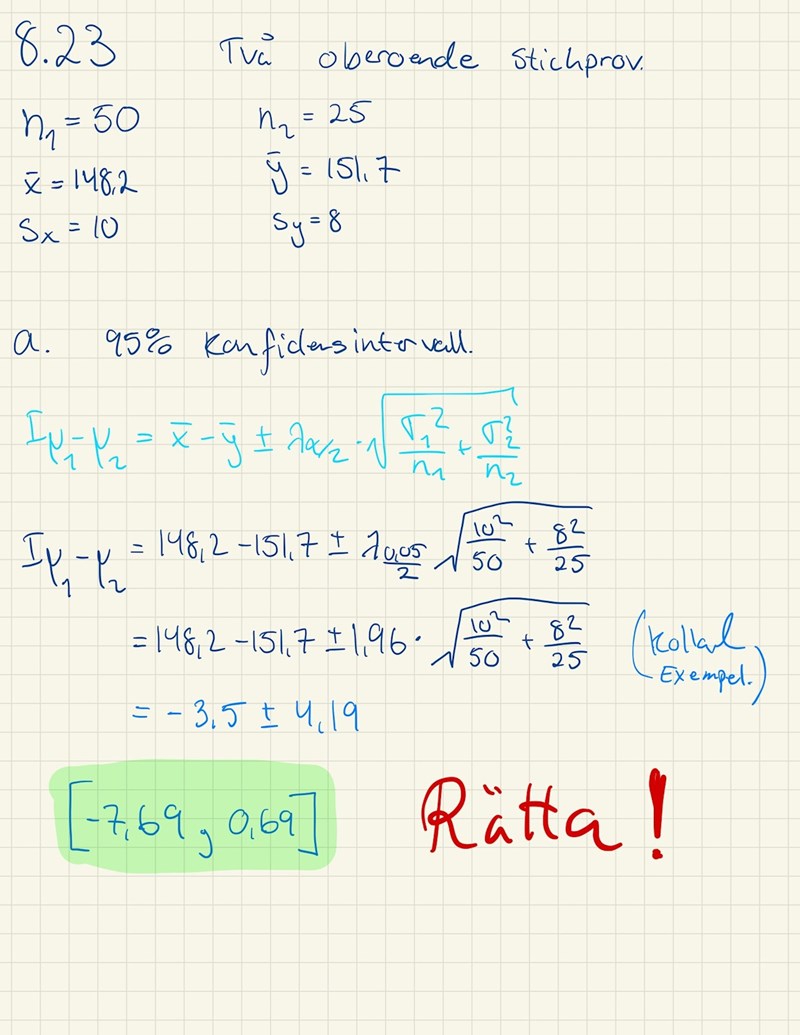 8.23 Två oberoende Stichprov.
n₁ = 50 n₂ = 25
x̄ = 148,2 ȳ = 151,7
Sx = 10 Sy = 8
a. 95% Konfidensintervall.
Iμ₁-μ₂ = x̄ - ȳ ± λα/2 · √(σ₁²/n₁ + σ₂²/n₂)
Iμ₁-μ₂ = 148,2 - 151,7 ± λ0,05/2 √(10²/50 + 8²/25)
= 148,2 - 151,7 ± 1,96 · √(10²/50 + 8²/25) (Kolla
Exempel.)
= - 3,5 ± 4,19
[-7,69, 0,69] Rätta!